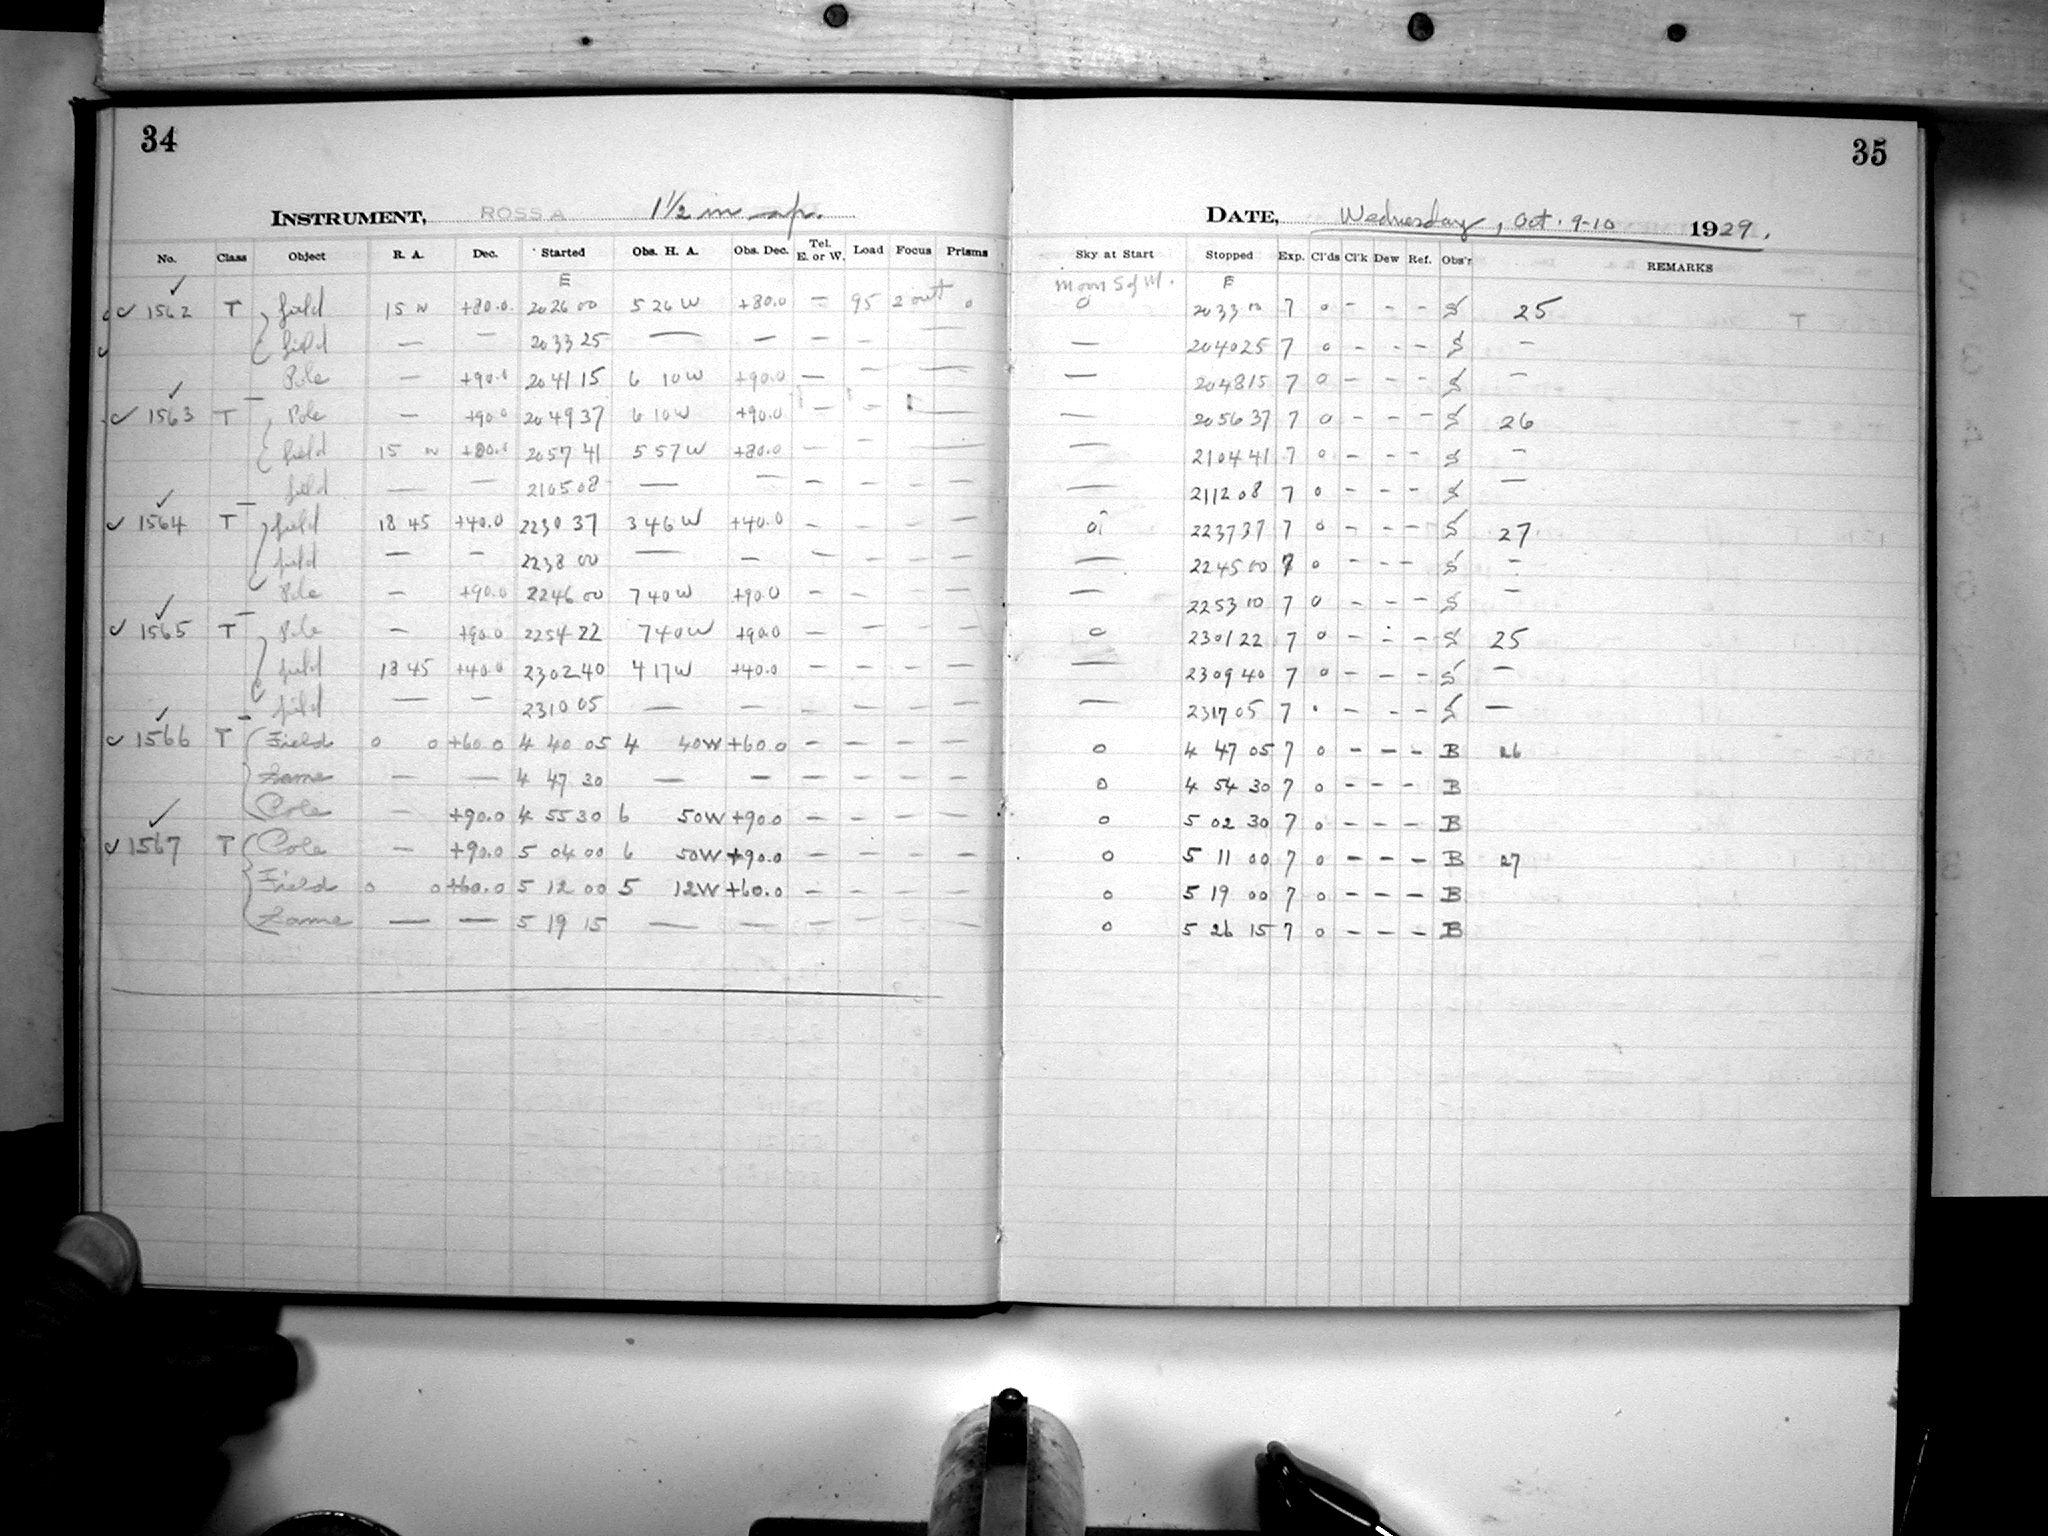 34
INSTRUMENT, ROSS A 1½ in ap.
No. Class Object R. A. Dec. Started Obs. H. A. Obs. Dec. Tel. E. or W. Load Focus Prisms
E
✓ 1562 T field 15 +80.0 20 26 00 5 26 W +80.0 — 95 2 out 0
field — — 20 33 25 — — — — —
Pole — +90.0 20 41 15 6 10 W +90.0 — — — —
✓ 1563 T Pole — +90.0 20 49 37 6 10 W +90.0 — — —
field 15 +80.0 20 57 41 5 57 W +80.0 — — —
field — — 21 05 08 — — — — —
✓ 1564 T field 18 45 +40.0 22 30 37 3 46 W +40.0 — — — —
field — — 22 38 00 — — — — — —
Pole — +90.0 22 46 00 7 40 W +90.0 — — — —
✓ 1565 T Pole — +90.0 22 54 22 7 40 W +90.0 — — — —
field 18 45 +40.0 23 02 40 4 17 W +40.0 — — — —
field — — 23 10 05 — — — — — —
✓ 1566 T Field 0 0 +60.0 4 40 05 4 40 W +60.0 — — — —
Same — — 4 47 30 — — — — — —
Pole — +90.0 4 55 30 6 50 W +90.0 — — — —
✓ 1567 T Pole — +90.0 5 04 00 6 50 W +90.0 — — — —
Field 0 0 +60.0 5 12 00 5 12 W +60.0 — — — —
Same — — 5 19 15 — — — — — —
35
DATE, Wednesday, Oct. 9-10 1929.
Sky at Start Stopped Exp. Cl'ds Cl'k Dew Ref. Obs'r REMARKS
Moon S of M. E
0 20 33 10 7 0 - - - S 25
— 20 40 25 7 0 - - - S —
— 20 48 15 7 0 - - - S —
— 20 56 37 7 0 - - - S 26
— 21 04 41 7 0 - - - S —
— 21 12 08 7 0 - - - S —
22 37 37 7 0 - - - S 27
— 22 45 00 7 0 - - - S —
— 22 53 10 7 0 - - - S —
0 23 01 22 7 0 - - - S 25
— 23 09 40 7 0 - - - S —
— 23 17 05 7 0 - - - S —
0 4 47 05 7 0 - - - B 26
0 4 54 30 7 0 - - - B
0 5 02 30 7 0 - - - B
0 5 11 00 7 0 - - - B 27
0 5 19 00 7 0 - - - B
0 5 26 15 7 0 - - - B